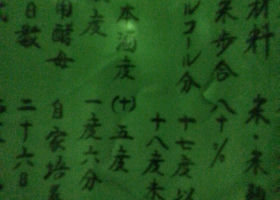 材料 米・米麹
米歩合 八十%
ルコール分 十七度以
十八度未
本酒度 (十)五度
度 一度六分
用酵母 自家培
日数 二十六日